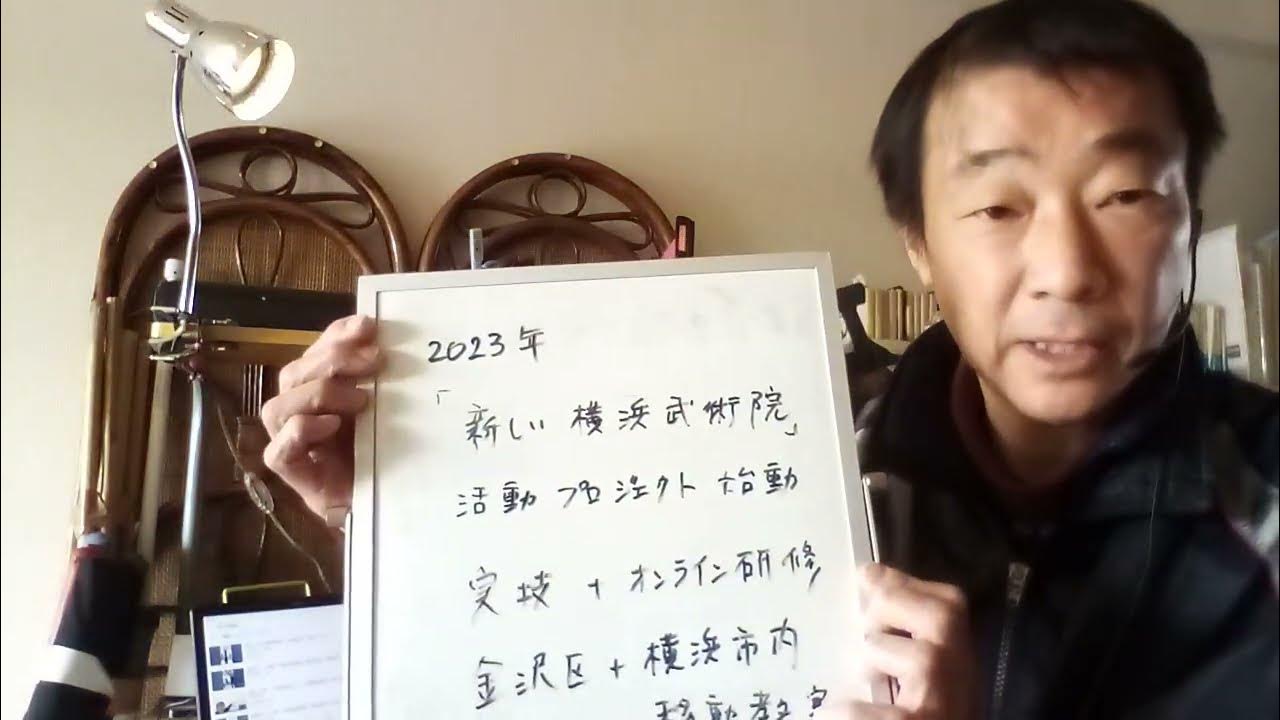 2023年
「新しい横浜武術院」
活動プロジェクト始動
実技+オンライン研修
金沢区+横浜市内
移動教室